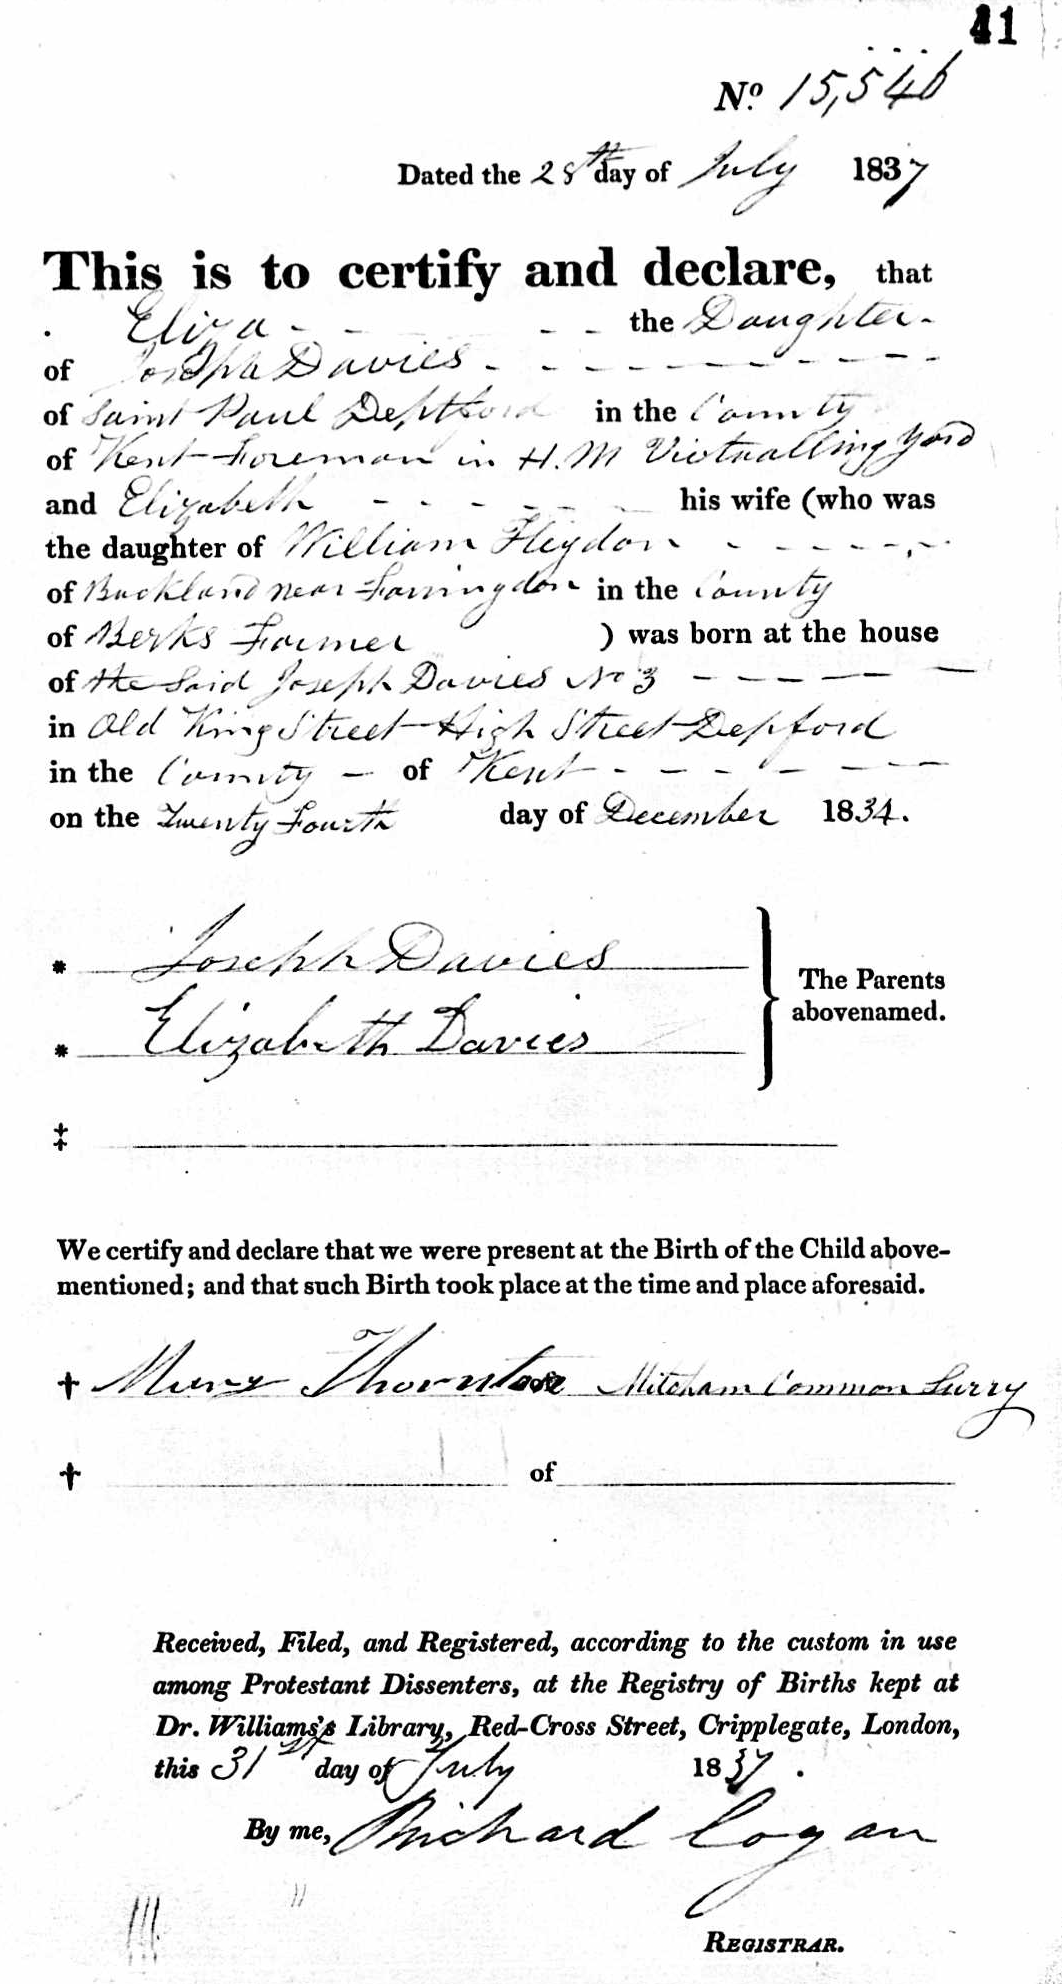 41
No. 15,546
Dated the 28th day of July 1837
This is to certify and declare, that
Eliza - - - - - the Daughter -
of Joseph Davies - - - - - - - - -
of Saint Paul Deptford in the County
of Kent Foreman in H. M Victualling Yard
and Elizabeth - - - - - - his wife (who was
the daughter of William Heydon - - - - - - -
of Buckland near Farringdon in the County
of Berks Farmer ) was born at the house
of the Said Joseph Davies No 3 - - - - - -
in Old King Street High Street Depford
in the County - of Kent - - - - - - -
on the Twenty Fourth day of December 1834.
* Joseph Davies
The Parents
abovenamed.
* Elizabeth Davies
‡
We certify and declare that we were present at the Birth of the Child above-
mentioned; and that such Birth took place at the time and place aforesaid.
† Mary Thornton Mitcham Common Surry
† of
Received, Filed, and Registered, according to the custom in use
among Protestant Dissenters, at the Registry of Births kept at
Dr. Williams's Library, Red-Cross Street, Cripplegate, London,
this 31st day of July 1837.
By me, Richard Cogan
REGISTRAR.